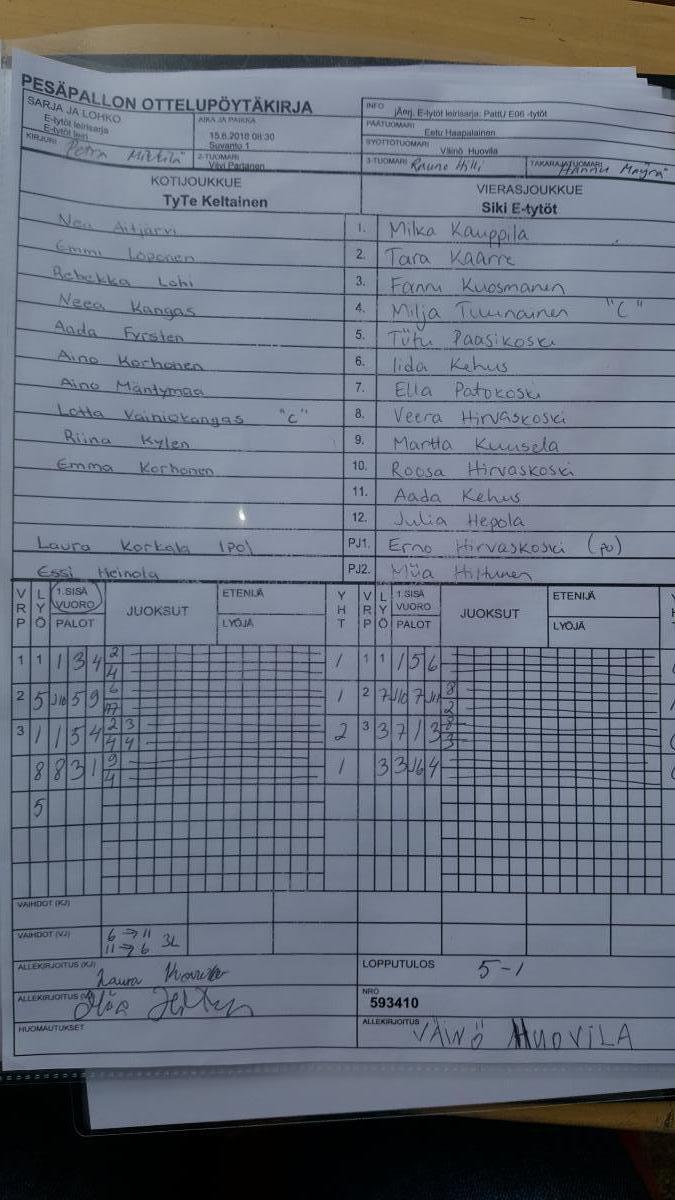 PESÄPALLON OTTELUPÖYTÄKIRJA
SARJA JA LOHKO
E-tytöt leirisarja
E-tytöt leiri
AIKA JA PAIKKA
15.6.2018 08:30
Suvanto 1
KIRJURI Petra
2-TUOMARI
INFO
jÄrrj. E-tytöt leirisarja: PattU E06 -tytöt
PÄÄTUOMARI
Eetu Haapalainen
SYÖTTÖTUOMARI
Väinö Huovila
3-TUOMARI Rauno Hilli
TAKARAJATUOMARI Hannu Mäyrä
KOTIJOUKKUE
TyTe Keltainen
VIERASJOUKKUE
Siki E-tytöt
Nea Aitjärvi 1. Milka Kauppila
Emmi Loponen 2. Tara Kaarre
Rebekka Lahi 3. Fanni Kuosmanen
Neea Kangas 4. Milja Tuunainen "C"
Aada Fyrsten 5. Tütu Paasikoski
Aino Korhonen 6. Iida Kehus
Aino Mäntymaa 7. Ella Patokoski
Lotta Vainiokangas "C" 8. Veera Hirvaskoski
Riina Kylen 9. Martta Kuusela
Emma Korhonen 10. Roosa Hirvaskoski
11. Aada Kehus
12. Julia Hepola
Laura Korkala (po) PJ1. Erno Hirvaskoski (pu)
Essi Heinola PJ2. Miia Hiltunen
VRP LYÖ 1.SISÄ VUORO PALOT JUOKSUT ETENIJÄ LYÖJÄ YHT VRP LYÖ 1.SISÄ VUORO PALOT JUOKSUT ETENIJÄ LYÖJÄ
1 1 1 3 4 2 4 1 1 1 1 5 6
2 5 J10 5 9 6 1 2 7 J10 7 J11 8 2
3 1 1 5 4 2 3 4 4 2 3 3 7 1 3 8 3
8 8 3 1 9 4 1 3 3 J6 4
5
VAIHDOT (KJ)
VAIHDOT (VJ) 6 → 11
11 → 6 3L
ALLEKIRJOITUS (KJ) Laura
LOPPUTULOS 5-1
NRO
593410
HUOMAUTUKSET
ALLEKIRJOITUS VÄINÖ HUOVILA